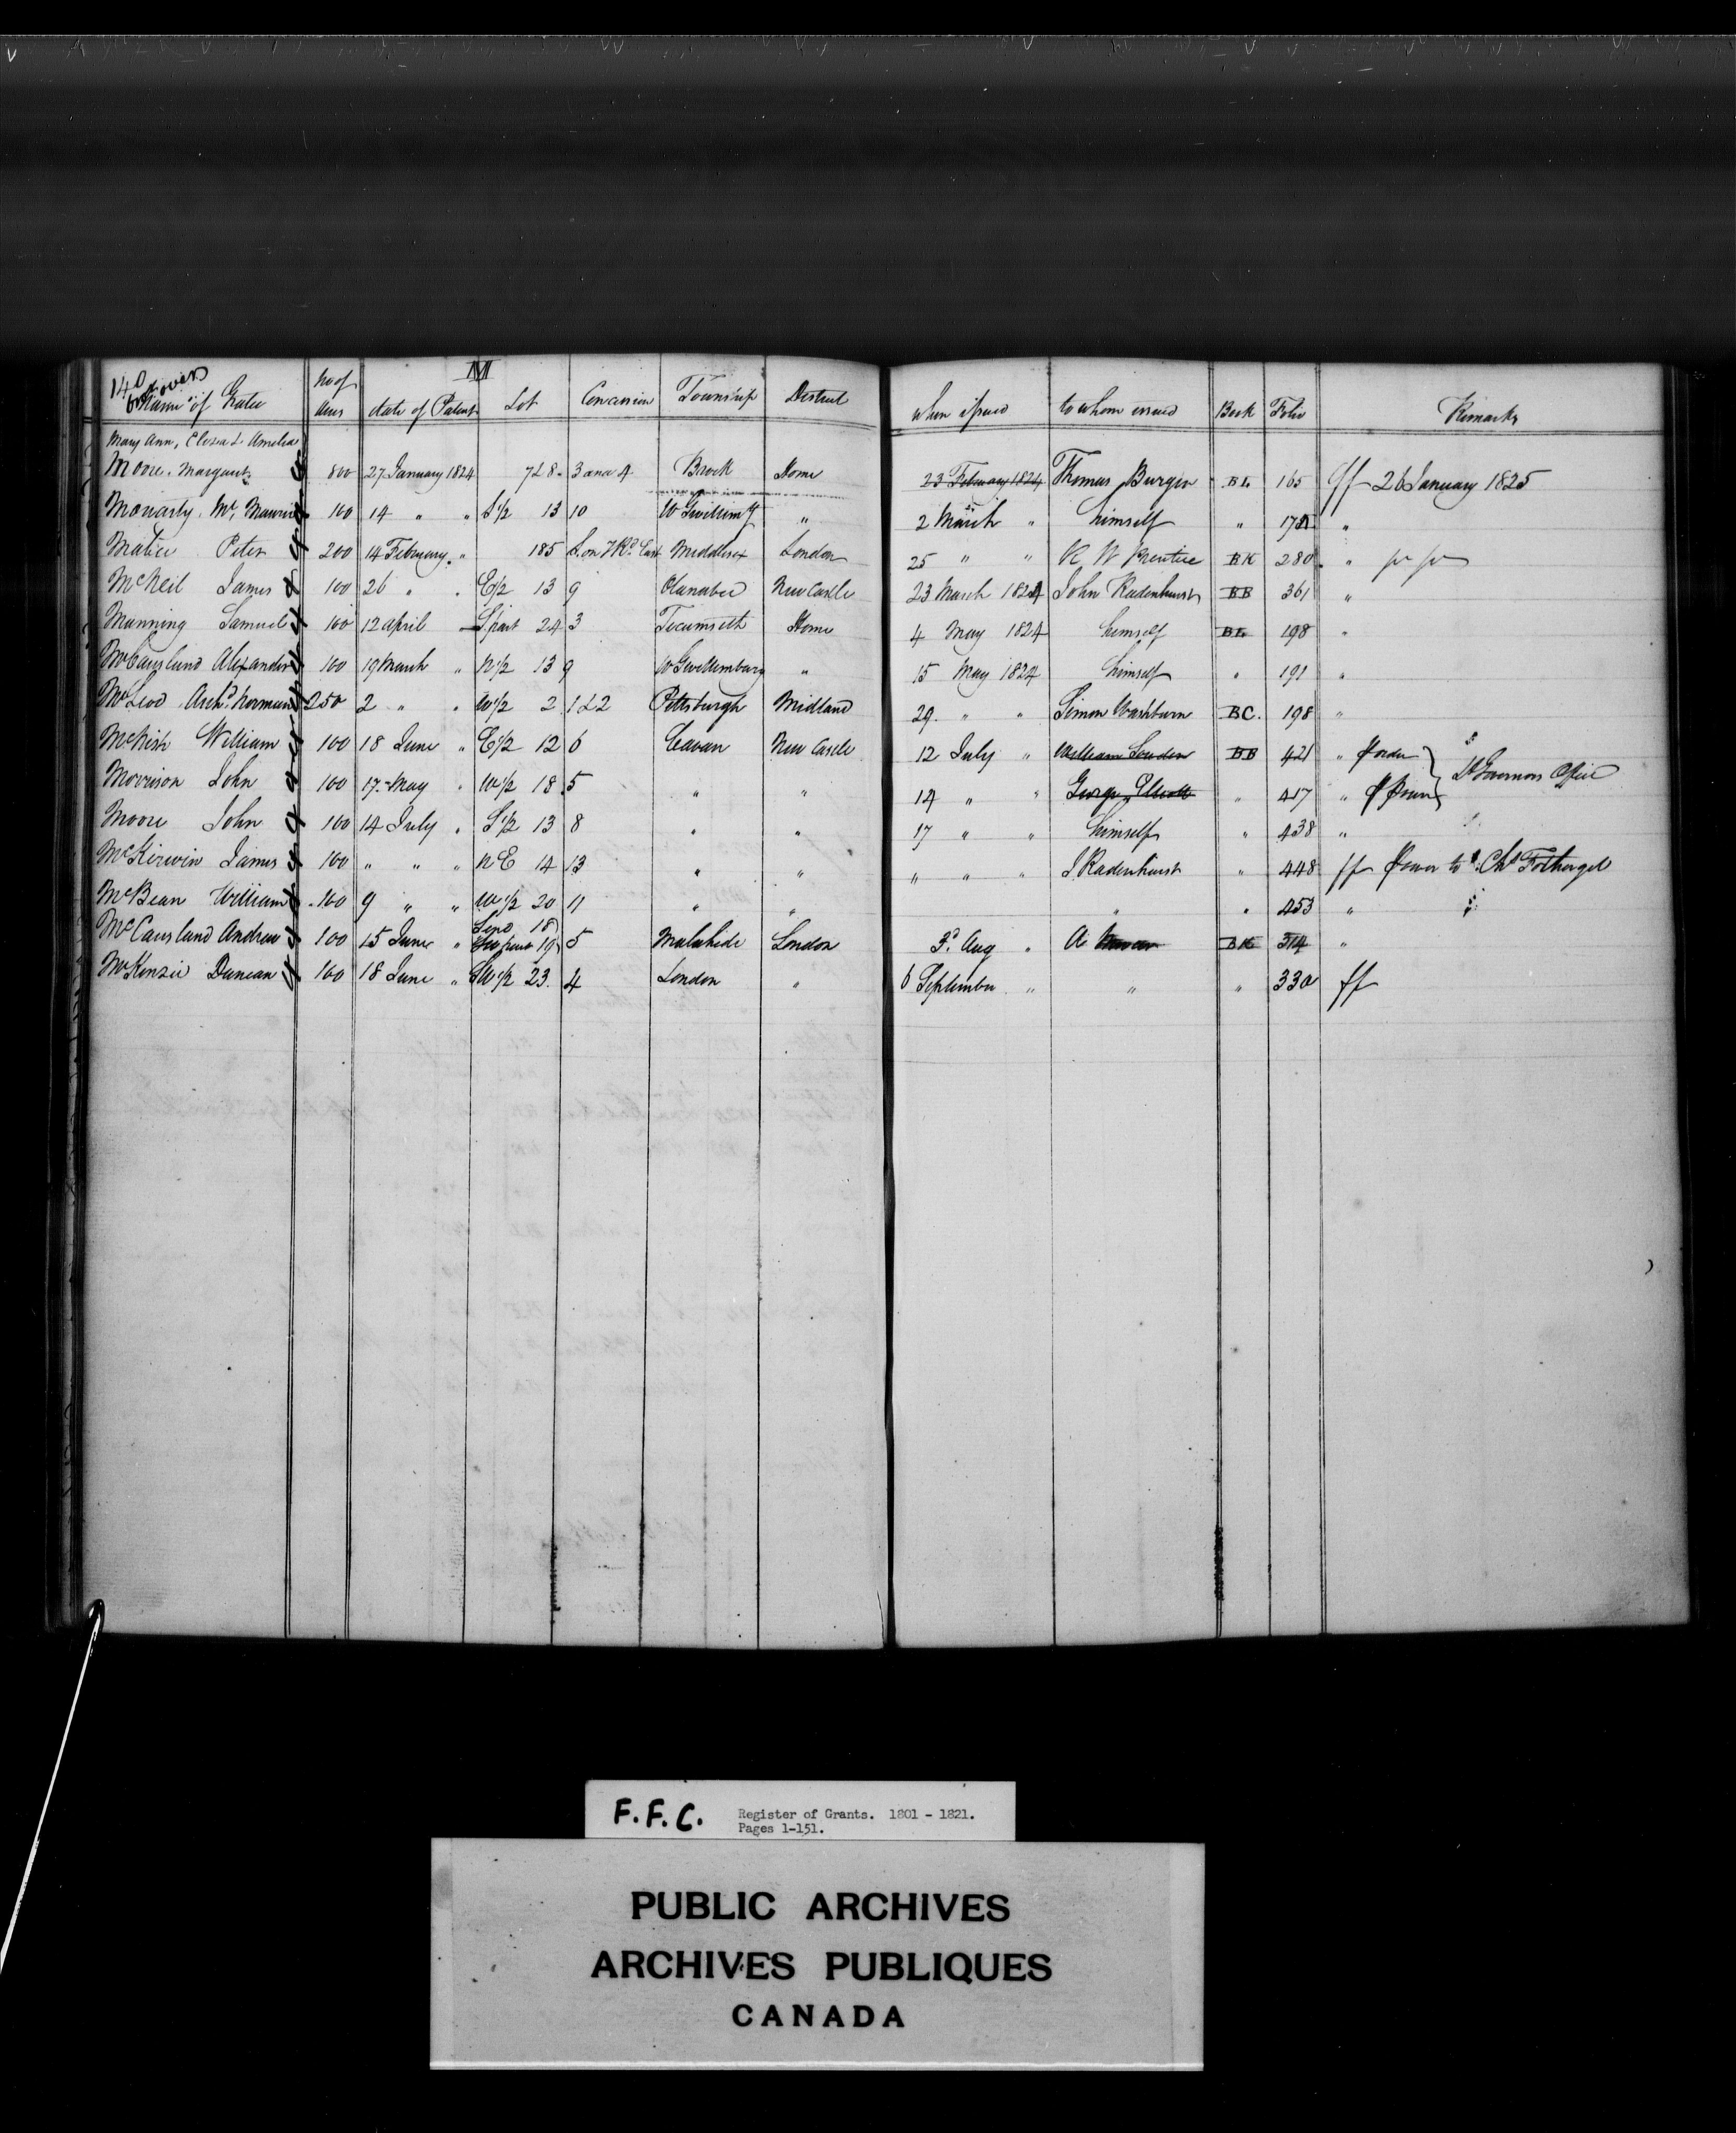 140
No of M
Name of Grantee Acres date of Patent Lot Concession Township District when issued to whom issued Book Folio Remarks
Mary Ann, Eliza & Amelia
Moore. Margaret 800 27 January 1824 7 & 8. 3 and 4 Brock Home 23 February 1824 Thomas Burgin BL 165 ff 26 January 1825
Moriarty. Mr. Maurice 100 14 " " S 1/2 13 10 W Gwillimy " 2 March " himself " 178 "
Matice Peter 200 14 February " 185 L. on T Rd. East Middlesex London 25 " " R W Prentice BK 280 "
McNeil James 100 26 " " E 1/2 13 9 Otanabee New Castle 23 March 1824 John Radenhurst BB 361 "
Manning Samuel 100 12 April S part 24 3 Tecumseth Home 4 May 1824 himself BL 198 "
McCausland Alexander 100 19 March " N 1/2 13 9 W Gwillimbury " 15 May 1824 himself " 191 "
McLeod Archd. Norman 250 2 " " W 1/2 2 1 & 2 Pittsburgh Midland 29. " " Simon Washburn BC. 198 "
McNish William 100 18 June " E 1/2 12 6 Cavan New Castle 12 July " William Louden BB 421 " order
Morrison John 100 17 May " W 1/2 18 5 " " 14 " " George Elliott " 417 " Lt Governors Office
Moore John 100 14 July " S 1/2 13 8 " " 17 " " himself " 438 "
McKirwin James 100 " " " N E 14 13 " " " " " J Radenhurst " 448 ff Power to Chs. Fothergel
McBean William 100 9 " " W 1/2 20 11 " " " " 453 "
McCausland Andrew 100 15 June " 18 19 5 Malahide London 3d. Aug " A BK 314 "
McKenzie Duncan 100 18 June " SW 1/2 23. 4 London " 6 September " " " 330 ff
F.F.C. Register of Grants. 1801 - 1821.
Pages 1-151.
PUBLIC ARCHIVES
ARCHIVES PUBLIQUES
CANADA